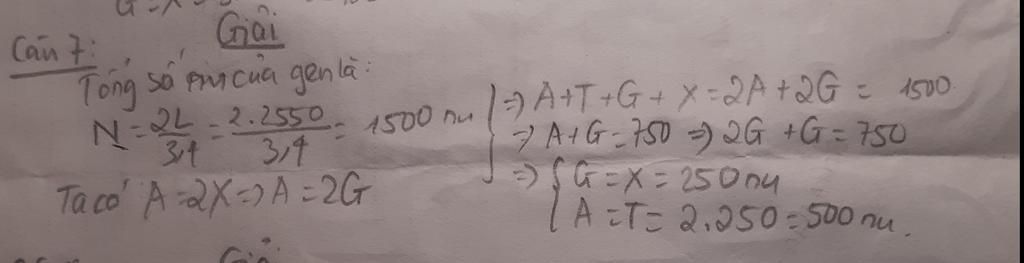 G = X
Giải
Câu 7:
Tổng số nu của gen là:
N = 2L/3,4 = 2.2550/3,4 = 1500 nu
Ta có A = 2X => A = 2G
=> A + T + G + X = 2A + 2G = 1500
=> A + G = 750 => 2G + G = 750
=> { G = X = 250 nu
A = T = 2.250 = 500 nu.
Giải